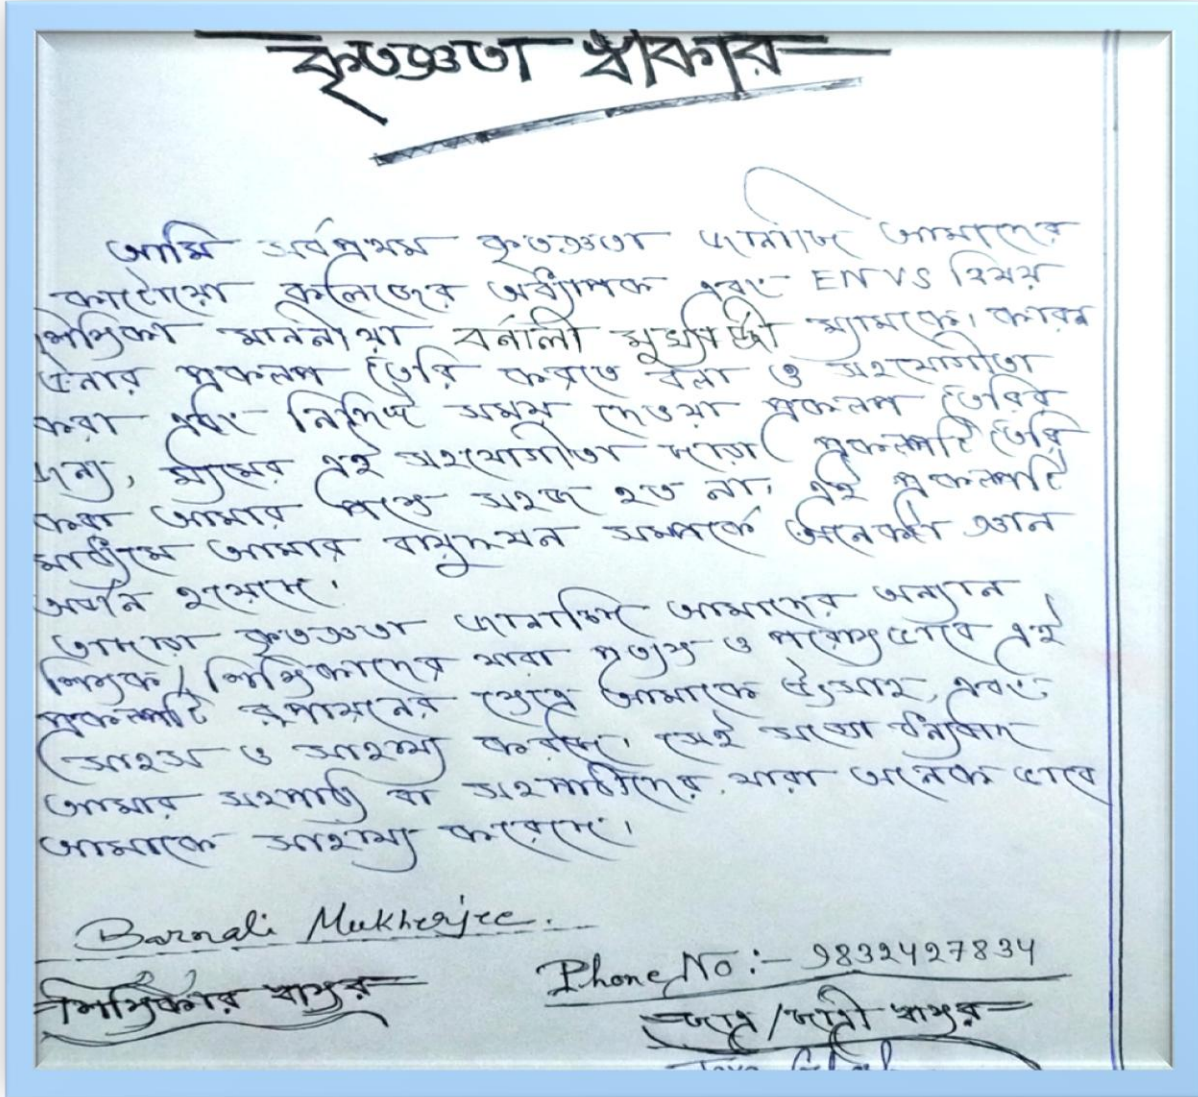 কৃতজ্ঞতা স্বীকার
আমি সর্বপ্রথম কৃতজ্ঞতা জানাচ্ছি আমাদের
কাটোয়া কলেজের অধ্যাপক এবং ENVS বিষয়
শিক্ষিকা মাননীয়া বর্নালী মুখার্জ্জী ম্যামকে। কারন
ওনার প্রকল্প তৈরি করতে বলা ও সহযোগীতা
করা এবং নির্দিষ্ট সময় দেওয়া প্রকল্প তৈরির
জন্য, ম্যামের এই সহযোগীতা ছাড়া প্রকল্পটি তৈরি
করা আমার পক্ষে সহজ হত না, এই প্রকল্পটি
মাধ্যমে আমার বায়ুদূষন সম্পর্কে অনেকটা জ্ঞান
অর্জন হয়েছে।
তাছাড়া কৃতজ্ঞতা জানাচ্ছি আমাদের অন্যান
শিক্ষক/শিক্ষিকাদের যারা প্রত্যক্ষ ও পরোক্ষভাবে এই
প্রকল্পটি রূপায়নের ক্ষেত্রে আমাকে উৎসাহ, এবং
সাহস ও সাহায্য করেছে। সেই সাথে ধন্যবাদ
আমার সহপাঠী বা সহপাঠীদের যারা অনেক ভাবে
আমাকে সাহায্য করেছে।
Barnali Mukherjee.
শিক্ষিকার স্বাক্ষর
Phone No :- 9832427834
ছাত্র/ছাত্রী স্বাক্ষর